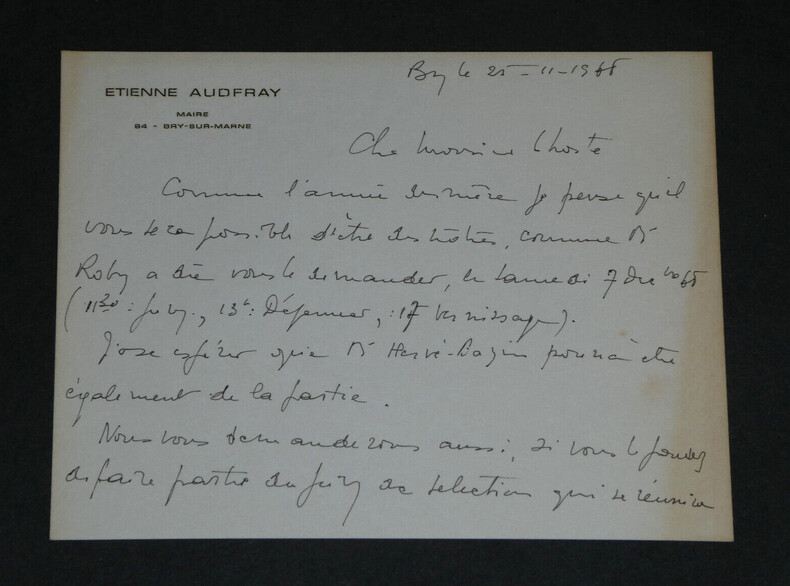 Bry le 25-11-1968
ETIENNE AUDFRAY
MAIRE
94 - BRY-SUR-MARNE
Cher Monsieur Lhoste
Comme l'année dernière je pense qu'il
vous sera possible d'être des nôtres, comme Mr
Roby a dû vous le demander, le samedi 7 Xbre 68
(11h30 : Jury, 13h : Déjeuner, : 17 Vernissage).
J'ose espérer que Mr Hervé-Bazin pourra être
également de la partie.
Nous vous demanderons aussi, si vous le pouvez
de faire partie du jury de selection qui se réunira